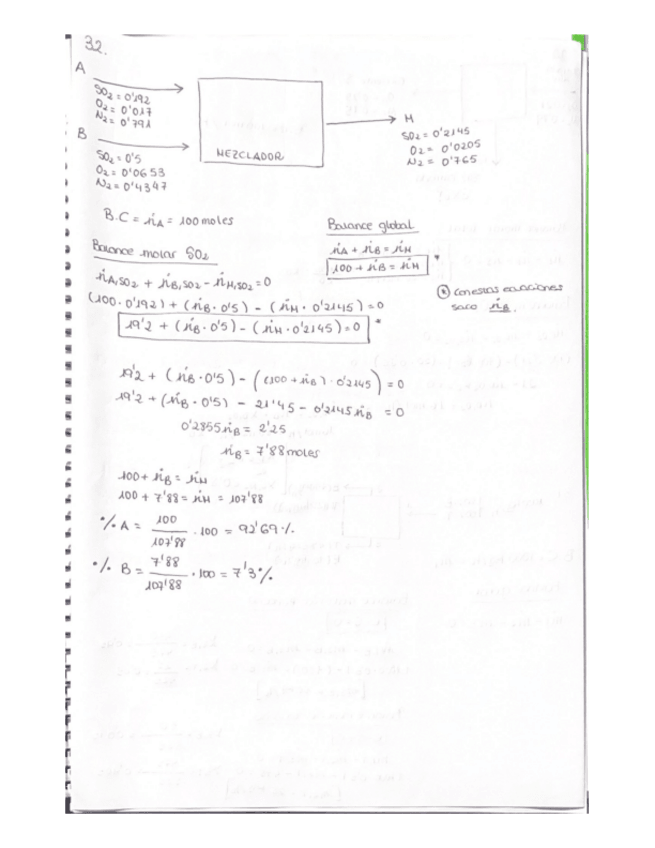 32.
A
SO2 = 0'192
O2 = 0'017
N2 = 0'791
B
SO2 = 0'5
O2 = 0'0653
N2 = 0'4347
MEZCLADOR
M
SO2 = 0'2145
O2 = 0'0205
N2 = 0'765
B.C = ṅA = 100 moles
Balance global
ṅA + ṅB = ṅM
100 + ṅB = ṅM *
* con estas ecuaciones
saco ṅB.
Balance molar SO2
ṅA,SO2 + ṅB,SO2 - ṅM,SO2 = 0
(100 · 0'192) + (ṅB · 0'5) - (ṅM · 0'2145) = 0
19'2 + (ṅB · 0'5) - (ṅM · 0'2145) = 0 *
19'2 + (ṅB · 0'5) - ((100 + ṅB) · 0'2145) = 0
19'2 + (ṅB · 0'5) - 21'45 - 0'2145 ṅB = 0
0'2855 ṅB = 2'25
ṅB = 7'88 moles
100 + ṅB = ṅM
100 + 7'88 = ṅM = 107'88
% A = 100 / 107'88 · 100 = 92'69 %
% B = 7'88 / 107'88 · 100 = 7'3 %